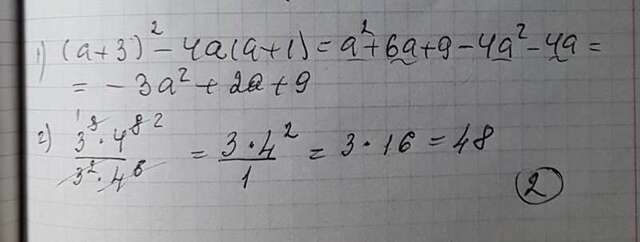 1) (a+3)² - 4a(a+1) = a² + 6a + 9 - 4a² - 4a =
= - 3a² + 2a + 9
2) 3⁸ · 4⁸ / 3² · 4⁶ = 3 · 4² / 1 = 3 · 16 = 48
2